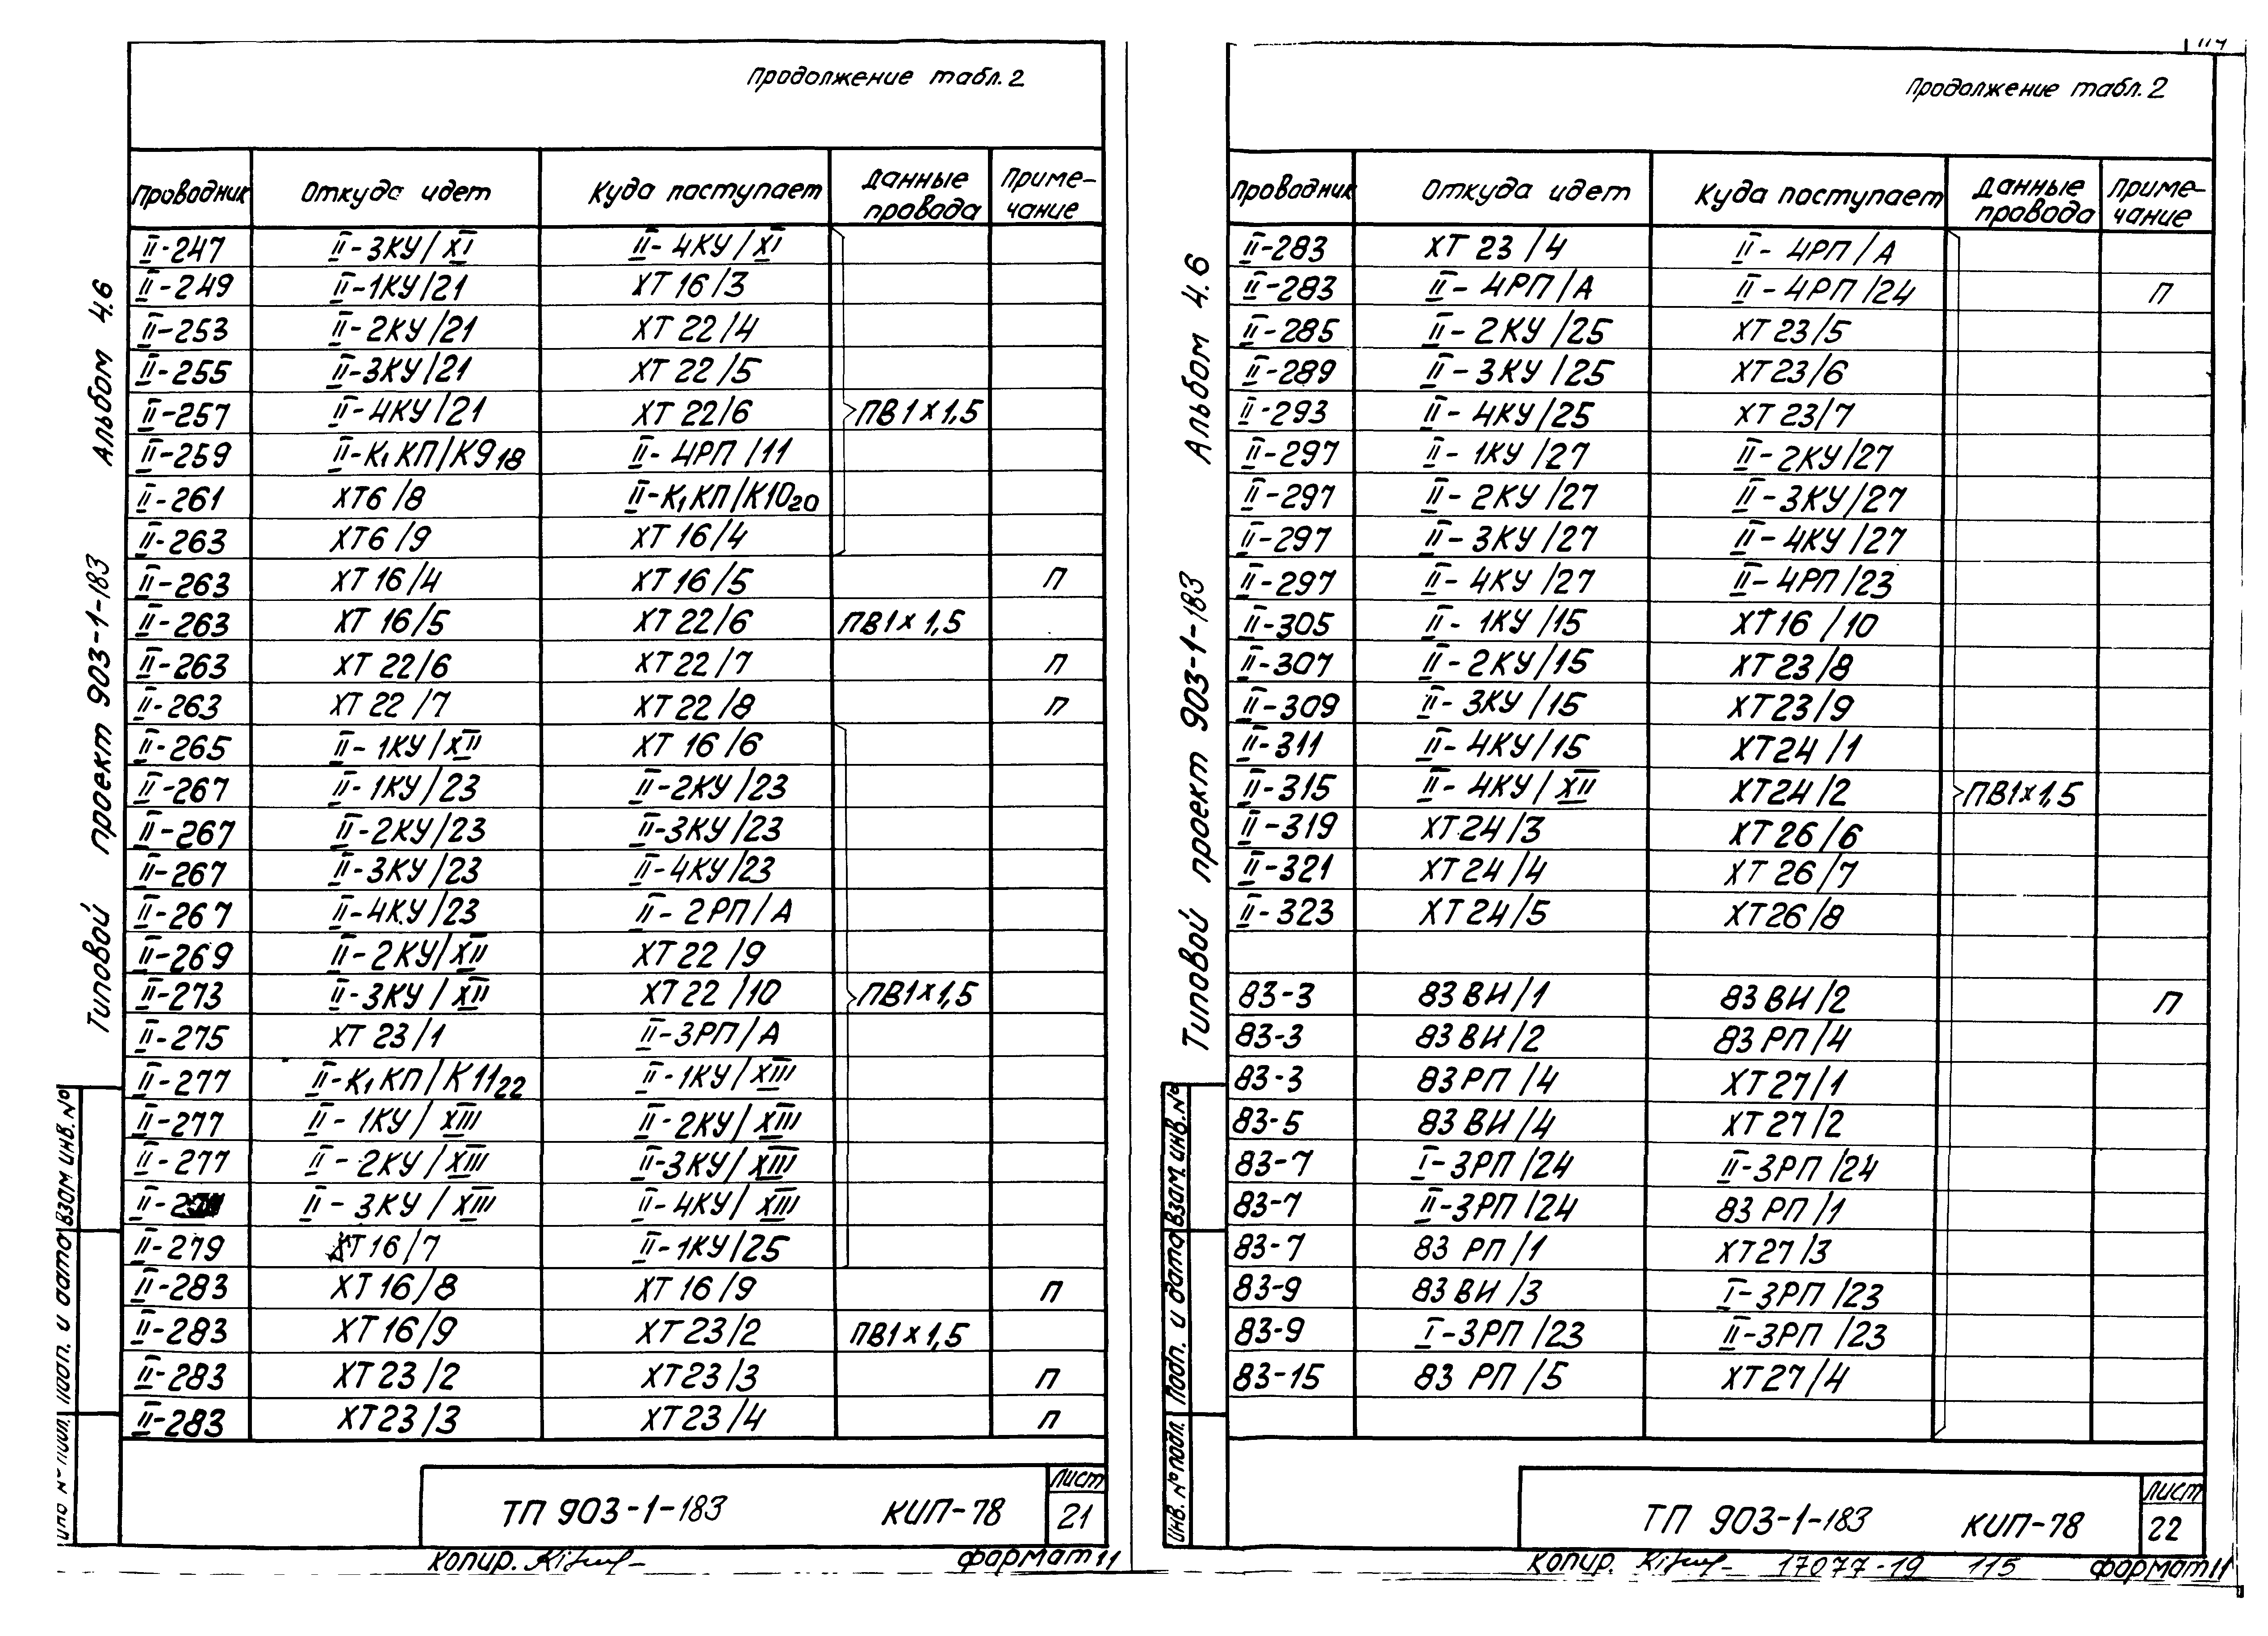 Продолжение табл. 2
Проводник Откуда идет Куда поступает Данные провода Приме-чание
II-247 II-3КУ/XI II-4КУ/XI
II-249 II-1КУ/21 ХТ 16/3
II-253 II-2КУ/21 ХТ 22/4
II-255 II-3КУ/21 ХТ 22/5
II-257 II-4КУ/21 ХТ 22/6 ПВ1х1,5
II-259 II-К1КП/К9 18 II-4РП/11
II-261 ХТ6/8 II-К1КП/К10 20
II-263 ХТ6/9 ХТ 16/4
II-263 ХТ 16/4 ХТ 16/5 П
II-263 ХТ 16/5 ХТ 22/6 ПВ1х1,5
II-263 ХТ 22/6 ХТ 22/7 П
II-263 ХТ 22/7 ХТ 22/8 П
II-265 II-1КУ/XII ХТ 16/6
II-267 II-1КУ/23 II-2КУ/23
II-267 II-2КУ/23 II-3КУ/23
II-267 II-3КУ/23 II-4КУ/23
II-267 II-4КУ/23 II-2РП/А
II-269 II-2КУ/XII ХТ 22/9
II-273 II-3КУ/XII ХТ 22/10 ПВ1х1,5
II-275 ХТ 23/1 II-3РП/А
II-277 II-К1КП/К11 22 II-1КУ/XIII
II-277 II-1КУ/XIII II-2КУ/XIII
II-277 II-2КУ/XIII II-3КУ/XIII
II- II-3КУ/XIII II-4КУ/XIII
II-279 ХТ16/7 II-1КУ/25
II-283 ХТ 16/8 ХТ 16/9 П
II-283 ХТ 16/9 ХТ 23/2 ПВ1х1,5
II-283 ХТ 23/2 ХТ23/3 П
II-283 ХТ23/3 ХТ23/4 П
ТП 903-1-183 КИП-78 Лист 21
Копир. формат 11
Типовой проект 903-1-183 Альбом 4.6
Подп. и дата Взам инв. №
Продолжение табл. 2
Проводник Откуда идет Куда поступает Данные провода Приме-чание
II-283 ХТ 23/4 II-4РП/А
II-283 II-4РП/А II-4РП/24 П
II-285 II-2КУ/25 ХТ23/5
II-289 II-3КУ/25 ХТ23/6
II-293 II-4КУ/25 ХТ 23/7
II-297 II-1КУ/27 II-2КУ/27
II-297 II-2КУ/27 II-3КУ/27
II-297 II-3КУ/27 II-4КУ/27
II-297 II-4КУ/27 II-4РП/23
II-305 II-1КУ/15 ХТ16/10
II-307 II-2КУ/15 ХТ 23/8
II-309 II-3КУ/15 ХТ23/9
II-311 II-4КУ/15 ХТ24/1
II-315 II-4КУ/XII ХТ24/2 ПВ1х1,5
II-319 ХТ24/3 ХТ 26/6
II-321 ХТ 24/4 ХТ 26/7
II-323 ХТ24/5 ХТ26/8
83-3 83 ВИ/1 83 ВИ/2 П
83-3 83 ВИ/2 83 РП/4
83-3 83 РП/4 ХТ27/1
83-5 83 ВИ/4 ХТ 27/2
83-7 I-3РП/24 II-3РП/24
83-7 II-3РП/24 83 РП/1
83-7 83 РП/1 ХТ27/3
83-9 83 ВИ/3 I-3РП/23
83-9 I-3РП/23 II-3РП/23
83-15 83 РП/5 ХТ27/4
ТП 903-1-183 КИП-78 Лист 22
Копир. 17077-19 115 формат 11
Типовой проект 903-1-183 Альбом 4.6
Инв. № подл. Подп. и дата Взам. инв. №